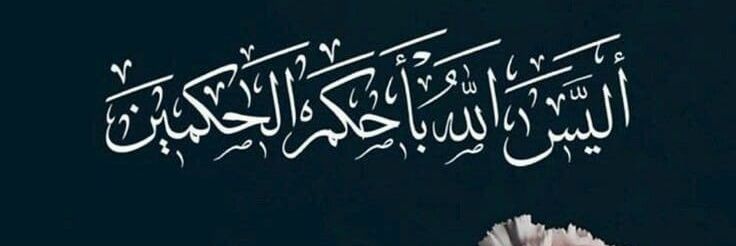 أليس الله بأحكم الحكمين